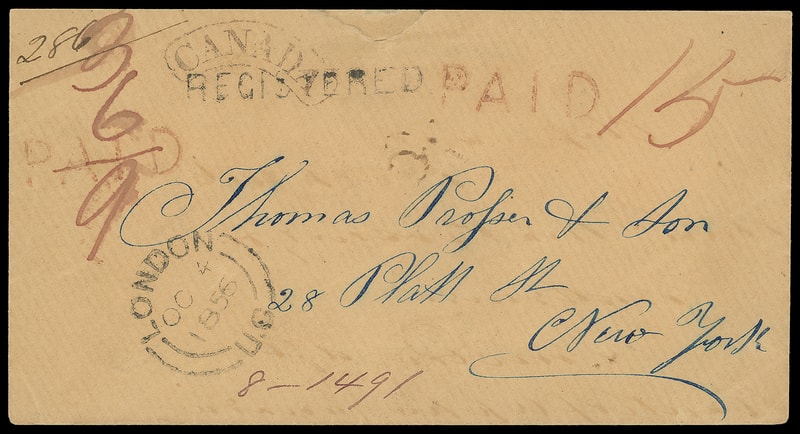 286
CANADA
REGISTERED
PAID 15
3
6
9
PAID
Thomas Prosser & Son
28 Platt St
New York
LONDON U.C
OC 4
1856
8-1491